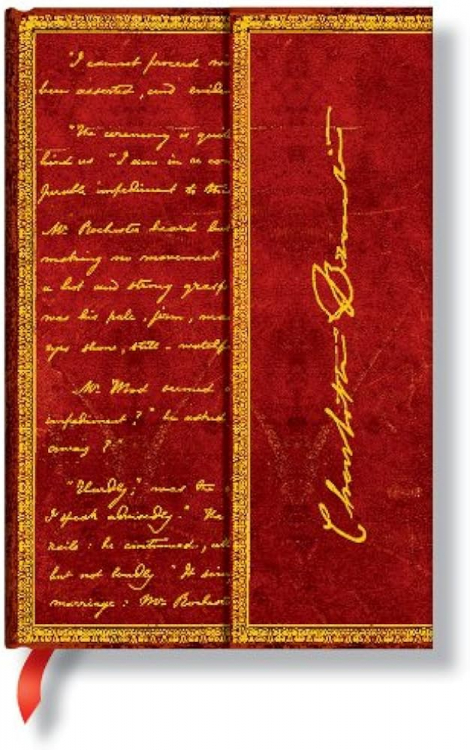 "I cannot proceed
been asserted, and evide
"The ceremony is
hind us "I am in a
perable impediment to
Mr. Rochester heard
making no movement
a hot and strong grasp
was his pale, firm,
eyes shone, still - watchf
Mr. Wood seemed
impediment?" he asked
away?"
"Hardly," was the
I speak advisedly." He
rails: he continued,
but not loudly "It
marriage: Mr. Rochest
Charlotte Brontë